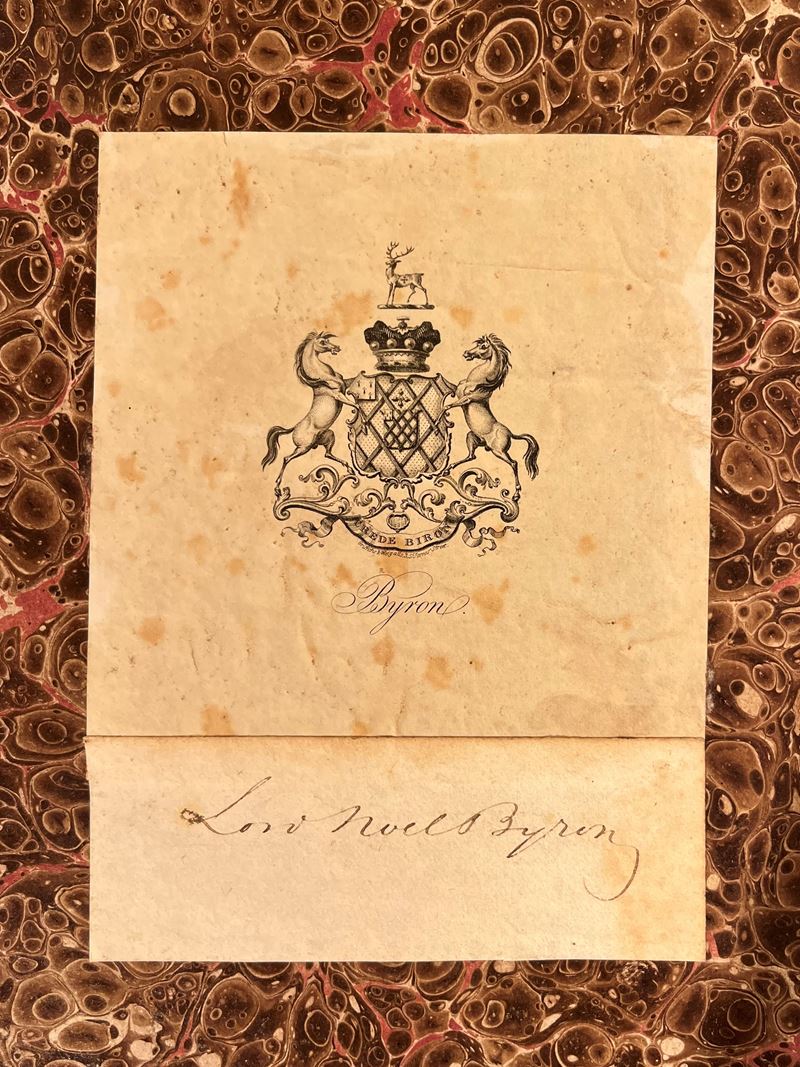 CREDE BIRON
Byron.
Lord Noel Byron